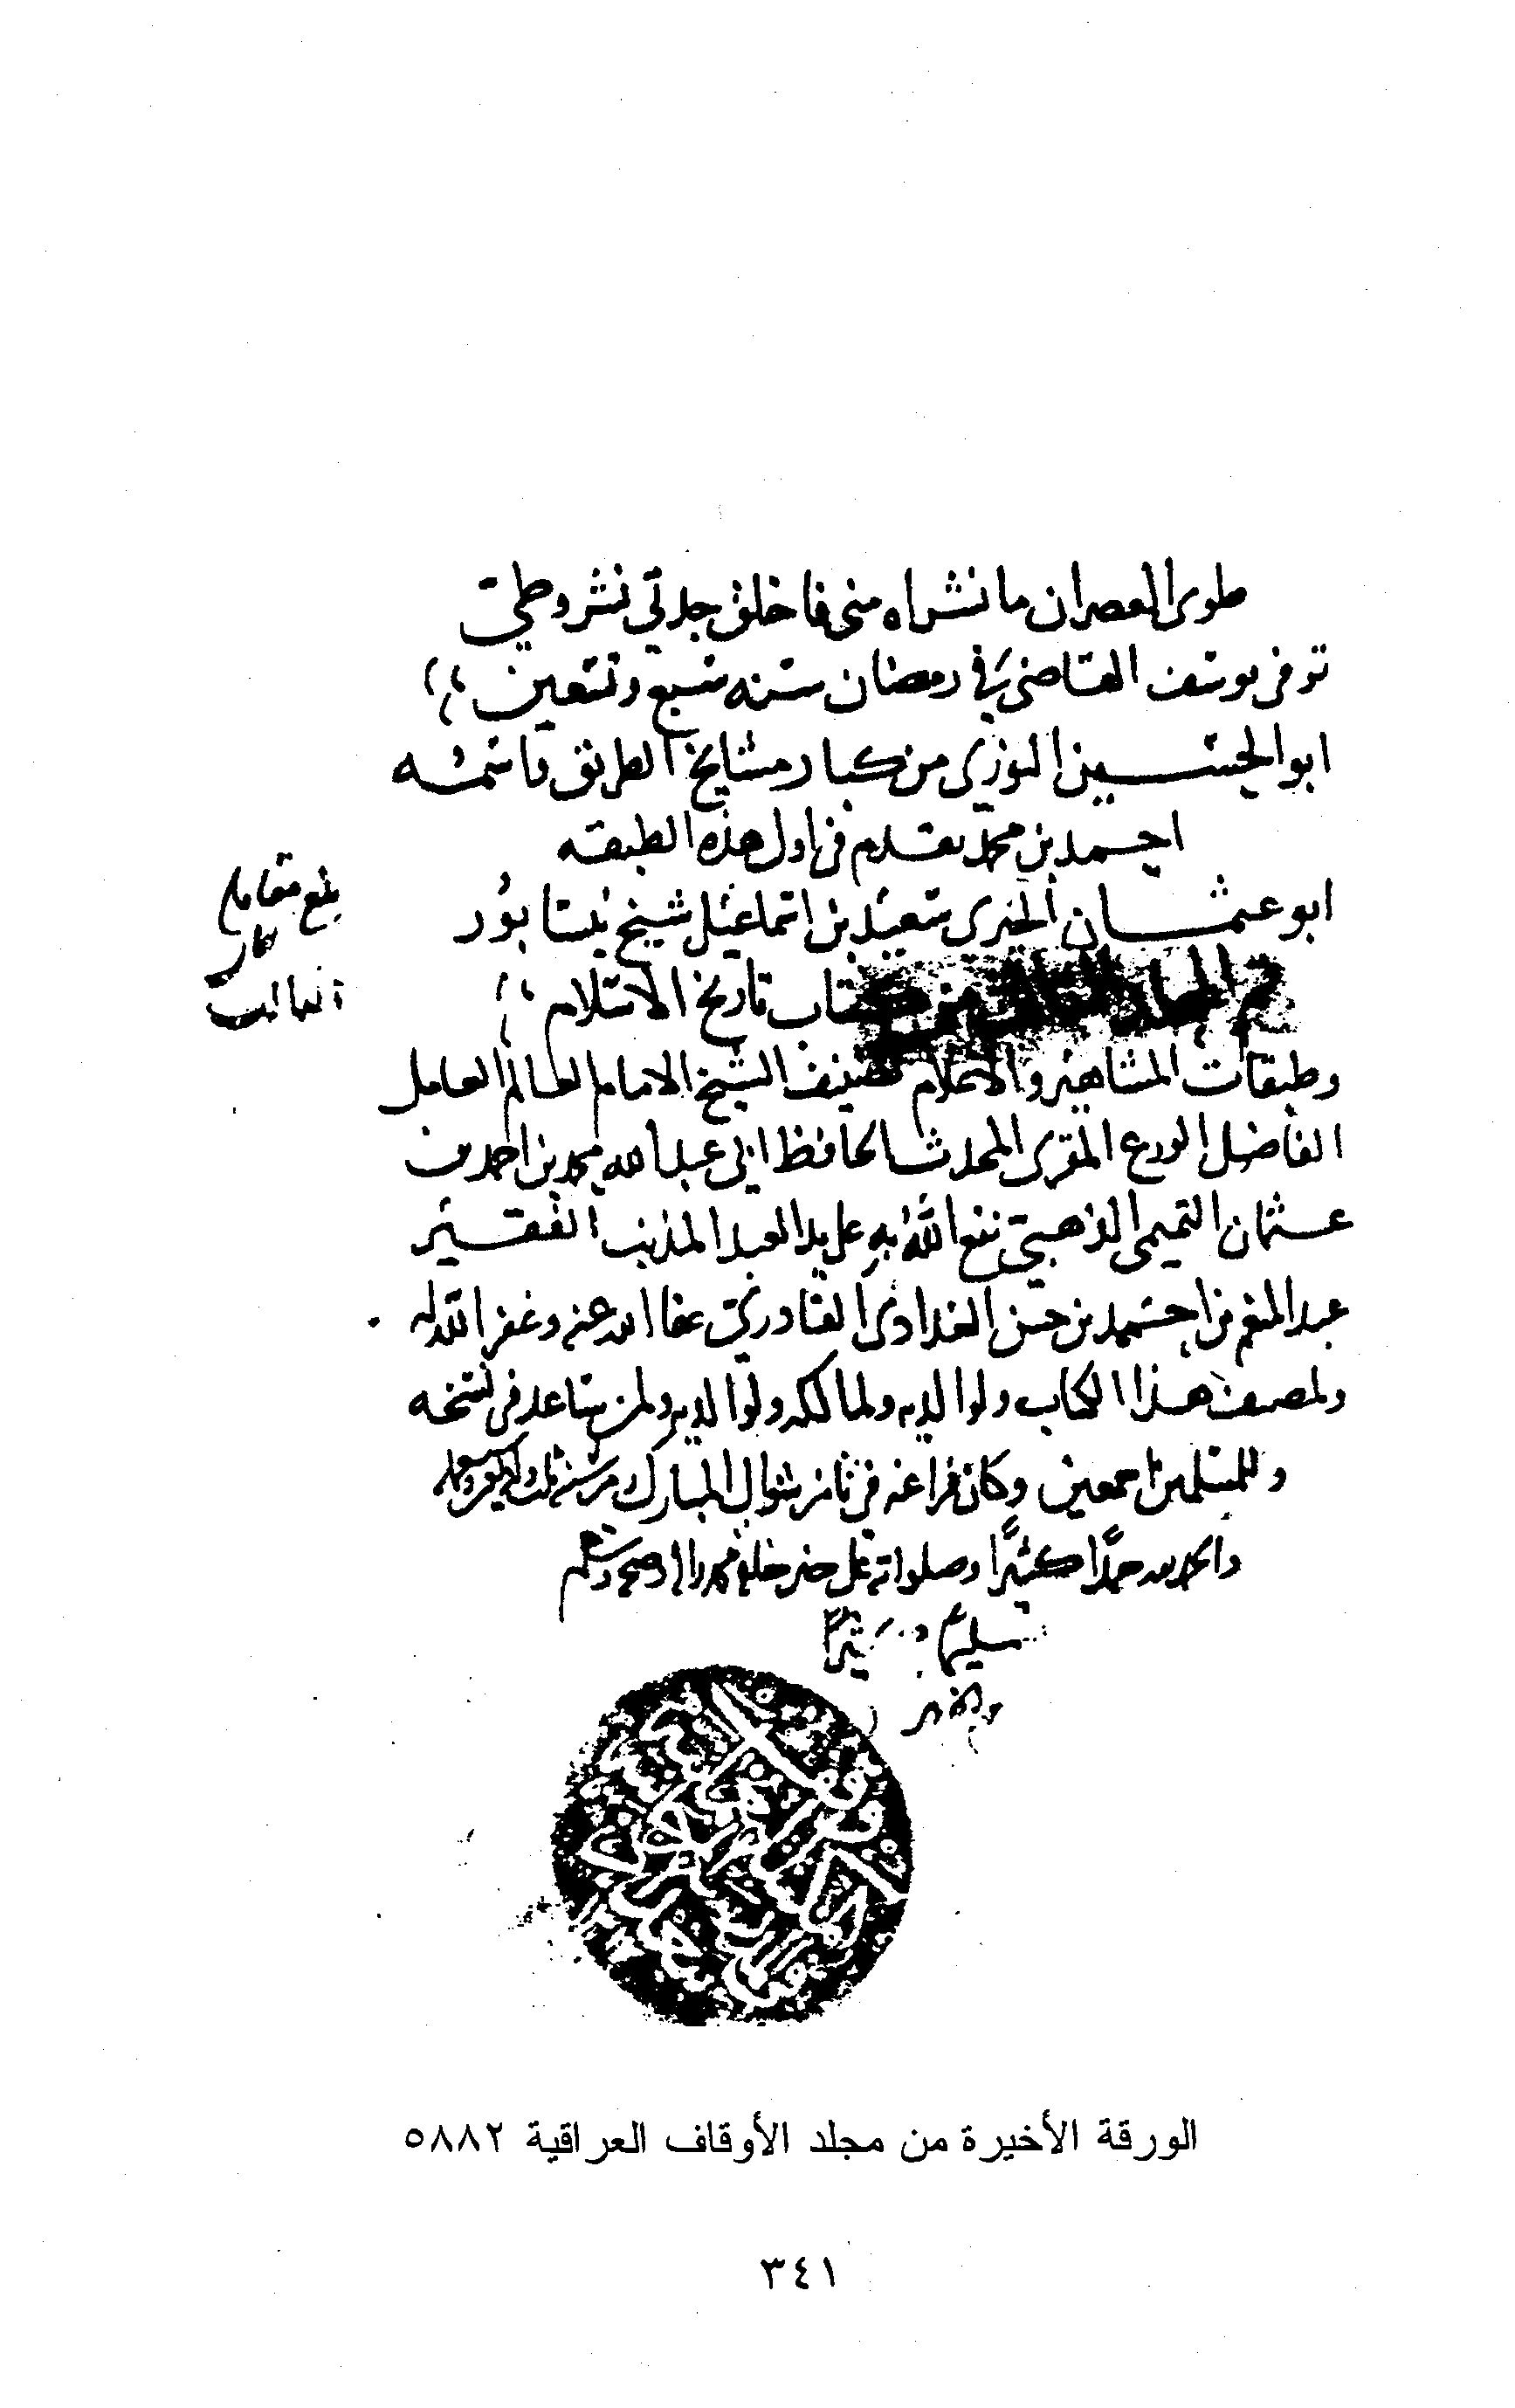 طوى العصران ما نشراه منى فاخلق جدتي نشر وطي
توفى يوسف القاضى في رمضان سنه سبع وتسعين
ابو الحسين النوري من كبار مشايخ الطريق واسمه
احمد بن محمد تقدم فى اول هذه الطبقه
ابو عثمان الحيرى سعيد بن اسماعيل شيخ نيسابور
تم المجلد من كتاب تاريخ الاسلام
وطبقات المشاهير والاعلام تصنيف الشيخ الامام العالم العامل
الفاضل الورع المقرى المحدث الحافظ ابى عبد الله محمد بن احمد بن
عثمان التميمى الذهبي نفع الله به على يد العبد المذنب الفقير
عبد المنعم بن احمد بن حسن البغدادى القادري عفا الله عنه وغفر الله له
ولمصنف هذا الكتاب ولوالديه ولمالكه ولوالديه ولمن ساعد فى نسخه
وللمسلمين اجمعين وكان فراغه في ثامن شوال المبارك من سنه
والحمد لله حمدًا كثيرًا وصلواته على خير خلقه محمد واله وصحبه وسلم
تسليما كثيرا
بلغ مقابله
الورقة الأخيرة من مجلد الأوقاف العراقية ٥٨٨٢
٣٤١